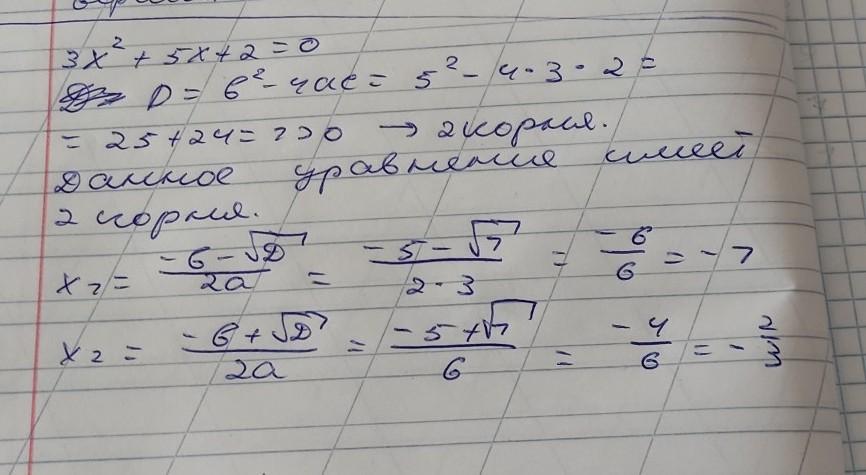 3x² + 5x + 2 = 0
D = b² - 4ac = 5² - 4 · 3 · 2 =
= 25 + 24 = 1 > 0 → 2 корня.
Данное уравнение имеет
2 корня.
x₁ = (-b - √D)/(2a) = (-5 - √1)/(2 · 3) = -6/6 = -1
x₂ = (-b + √D)/(2a) = (-5 + √1)/6 = -4/6 = -2/3